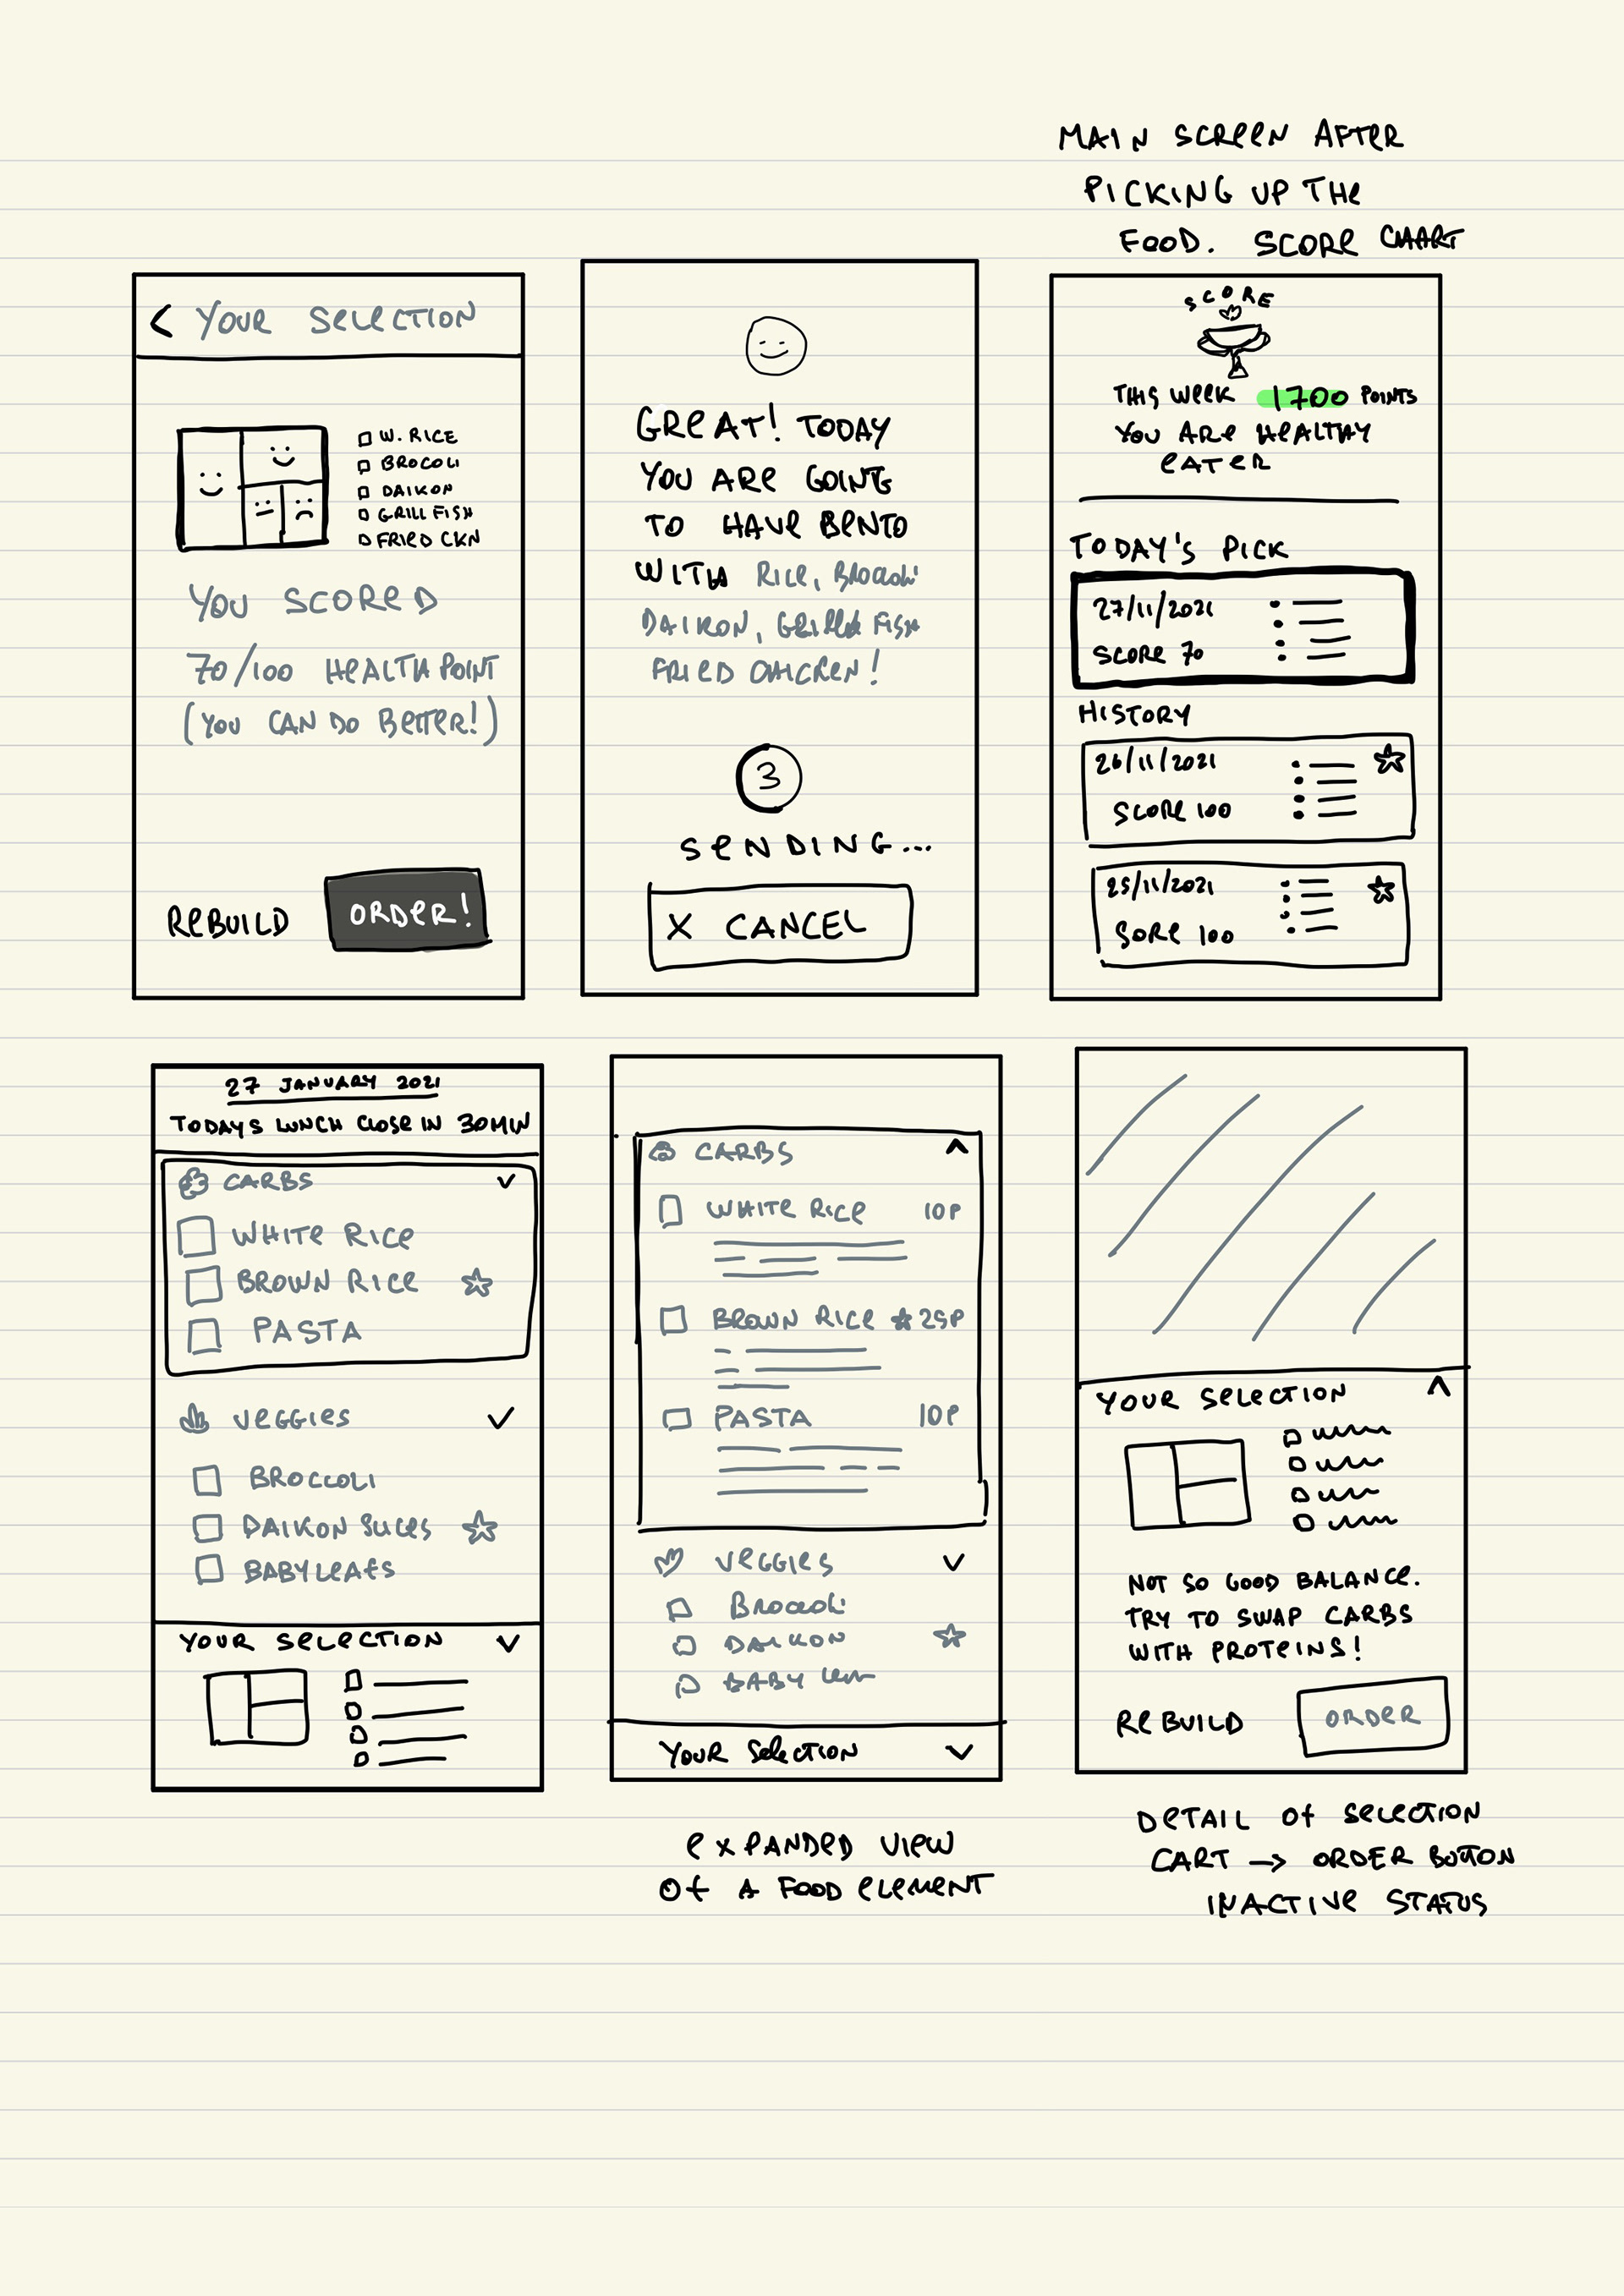 MAIN SCREEN AFTER
PICKING UP THE
FOOD. SCORE CHART
< YOUR SELECTION
W. RICE
BROCOLI
DAIKON
GRILL FISH
FRIED CKN
YOU SCORED
70/100 HEALTH POINT
(YOU CAN DO BETTER!)
REBUILD ORDER!
GREAT! TODAY
YOU ARE GOING
TO HAVE BENTO
WITH RICE, BROCCOLI
DAIKON, GRILLED FISH
FRIED CHICKEN!
3
SENDING...
X CANCEL
SCORE
THIS WEEK 1700 POINTS
YOU ARE HEALTHY
EATER
TODAY'S PICK
27/11/2021
SCORE 70
HISTORY
26/11/2021
SCORE 100
25/11/2021
SORE 100
27 JANUARY 2021
TODAYS LUNCH CLOSE IN 30MIN
CARBS
WHITE RICE
BROWN RICE
PASTA
VEGGIES
BROCCOLI
DAIKON SLICES
BABY LEAFS
YOUR SELECTION
CARBS
WHITE RICE 10P
BROWN RICE 25P
PASTA 10P
VEGGIES
BROCCOLI
DAIKON
BABY
YOUR SELECTION
EXPANDED VIEW
OF A FOOD ELEMENT
YOUR SELECTION
NOT SO GOOD BALANCE.
TRY TO SWAP CARBS
WITH PROTEINS!
REBUILD ORDER
DETAIL OF SELECTION
CART → ORDER BUTTON
INACTIVE STATUS